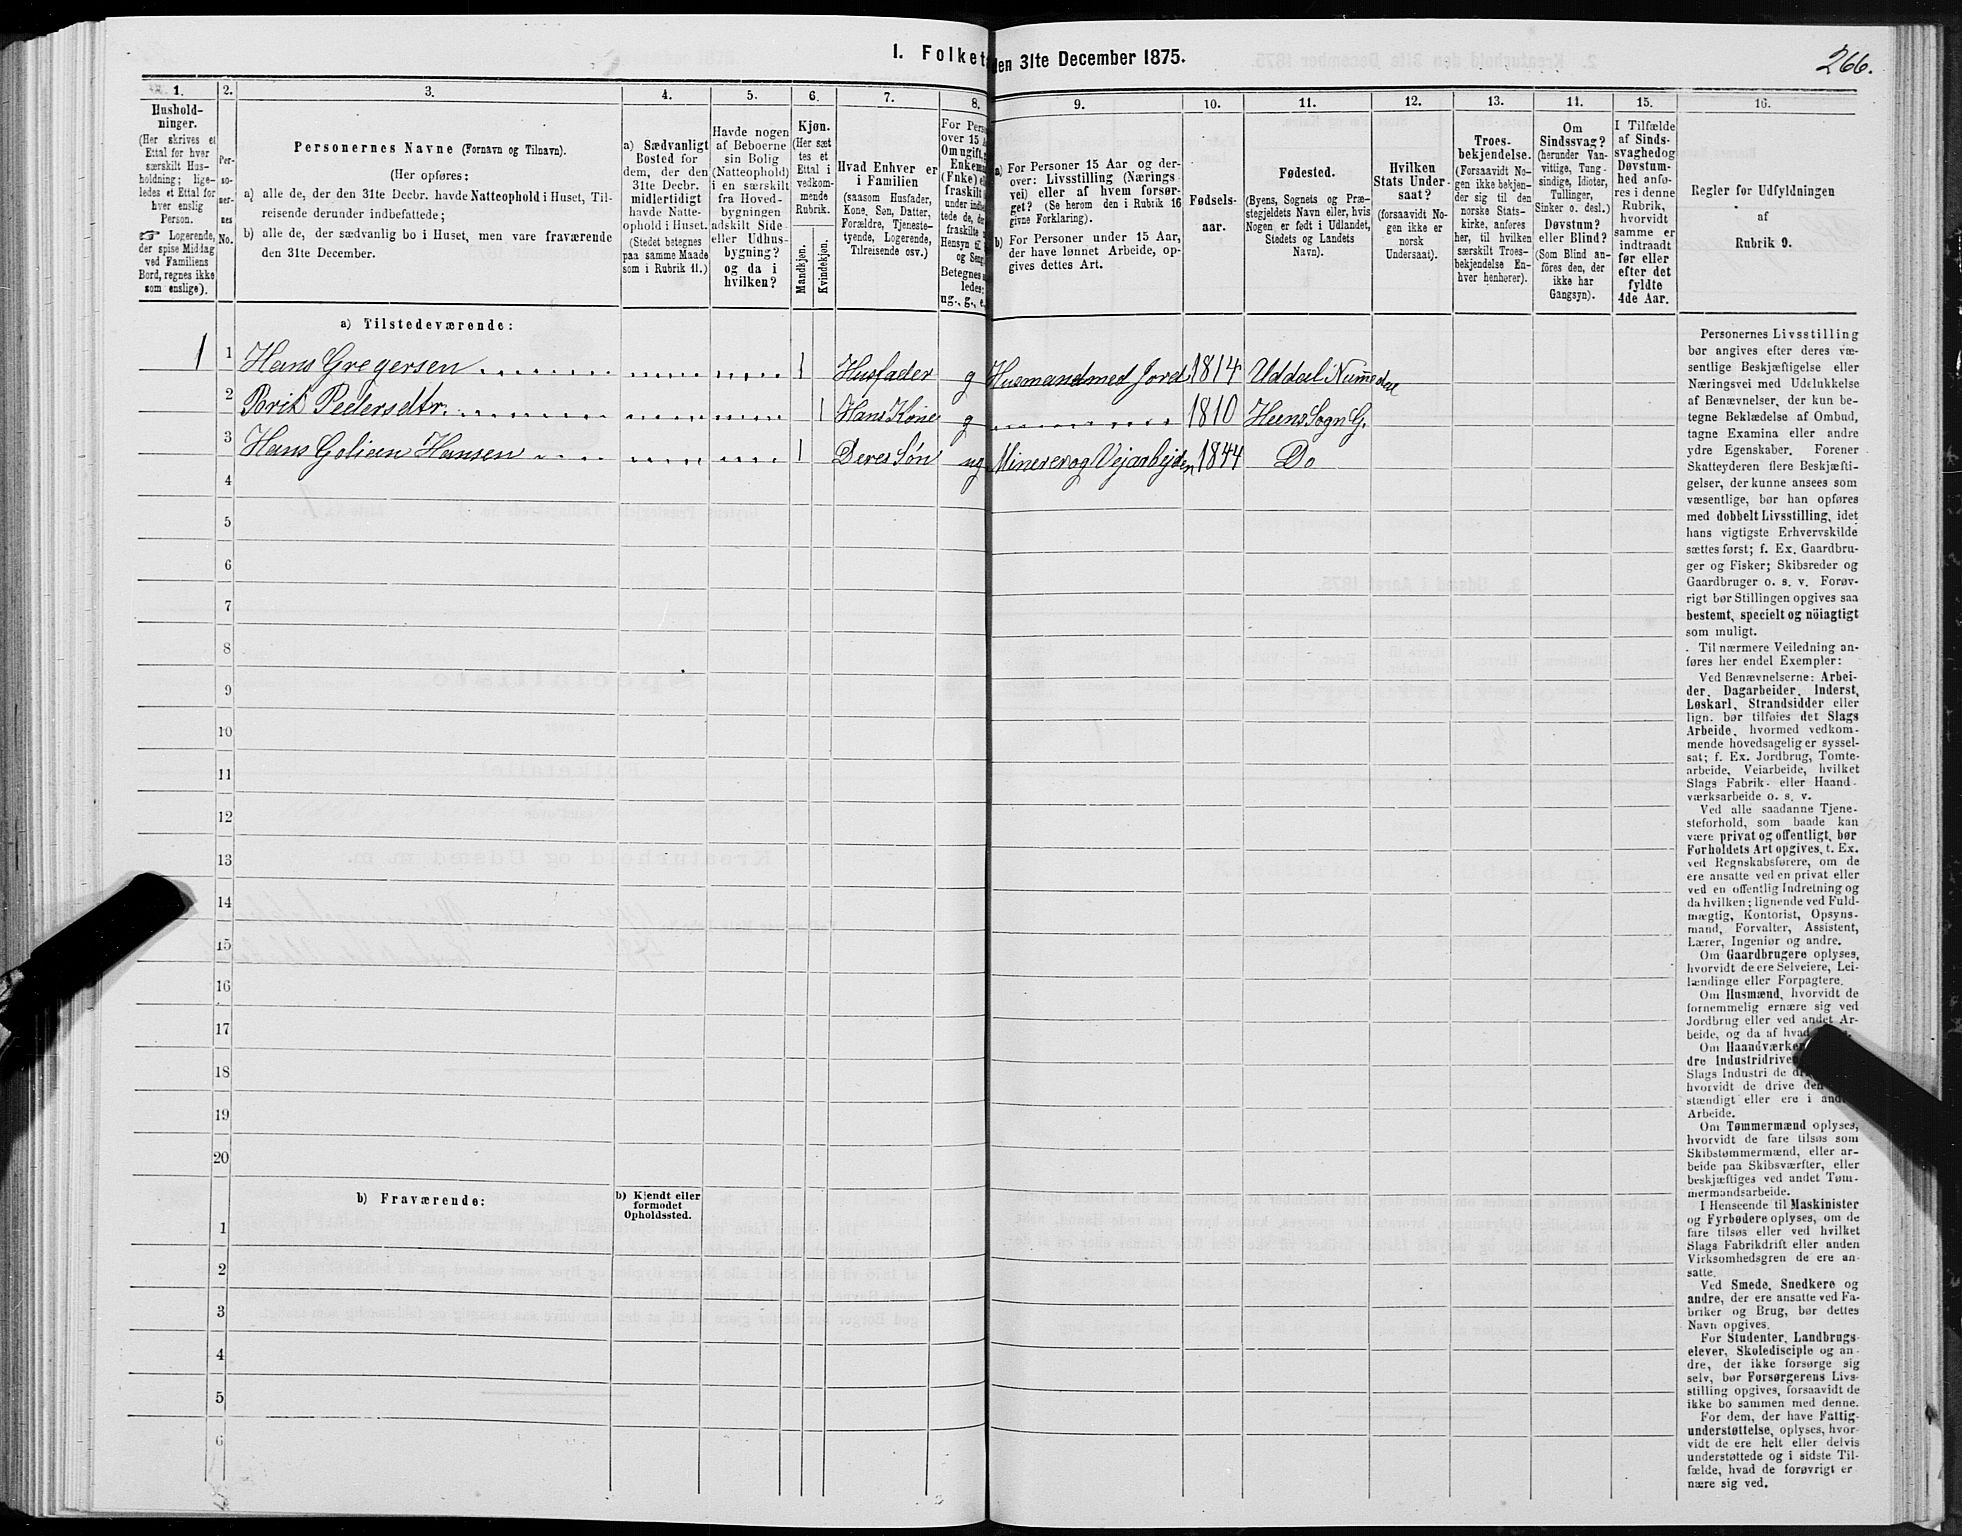 1. Folket
den 31te December 1875.
266.
1.
Hushold-
ninger.
(Her skrives et
Ettal for hver
særskilt Hus-
holdning; lige-
ledes et Ettal for
hver enslig
Person.
☞ Logerende,
der spise Middag
ved Familiens
Bord, regnes ikke
som enslige).
2.
Per-
so-
ner-
nes
No.
3.
Personernes Navne (Fornavn og Tilnavn).
(Her opføres:
a) alle de, der den 31te Decbr. havde Natteophold i Huset, Til-
reisende derunder indbefattede;
b) alle de, der sædvanlig bo i Huset, men vare fraværende
den 31te December.
4.
a) Sædvanligt
Bosted for
dem, der den
31te Decbr.
midlertidigt
havde Natte-
ophold i Huset.
(Stedet betegnes
paa samme Maade
som i Rubrik 11.)
5.
Havde nogen
af Beboerne
sin Bolig
(Natteophold)
i en særskilt
fra Hoved-
bygningen
adskilt Side-
eller Udhus-
bygning?
og da i
hvilken?
6.
Kjøn.
(Her sæt
tes et
Ettal i
vedkom-
mende
Rubrik.
Mandkjøn.
Kvindekjøn.
7.
Hvad Enhver er
i Familien
(saasom Husfader,
Kone, Søn, Datter,
Forældre, Tjeneste-
tyende, Logerende,
Tilreisende osv.)
8.
For Perso
over 15 A
Om ugift,
Enkema
(Fnke) e
fraskilt
under indb
tede de, d
fraskilte
Hensyn til
og Seng
Betegnes
ledes:
ug., g., e.
9.
a) For Personer 15 Aar og der-
over: Livsstilling (Nærings-
vei) eller af hvem forsør-
get? (Se herom den i Rubrik 16
givne Forklaring).
b) For Personer under 15 Aar,
der have lønnet Arbeide, op-
gives dettes Art.
10.
Fødsels-
aar.
11.
Fødested.
(Byens, Sognets og Præ-
stegjeldets Navn eller, hvis
Nogen er født i Udlandet,
Stedets og Landets
Navn).
12.
Hvilken
Stats Under-
saat?
(forsaavidt No-
gen ikke er
norsk
Undersaat).
13.
Troes-
bekjendelse.
(Forsaavidt No-
gen ikke bekjen-
der sig til den
norske Stats-
kirke, anføres
her, til hvilken
særskilt Troes-
bekjendelse En-
hver henhører).
14.
Om
Sindssvag?
(herunder Van-
vittige, Tung-
sindige, Idioter,
Tullinger,
Sinker o. desl.)
Døvstum?
eller Blind?
(Som Blind an-
føres den, der
ikke har
Gangsyn).
15.
I Tilfælde
af Sinds-
svaghed og
Døvstum-
hed anfø-
res i denne
Rubrik,
hvorvidt
samme er
indtraadt
før eller
efter det
fyldte
4de Aar.
16.
Regler for Udfyldningen
af
Rubrik 9.
a) Tilstedeværende:
1 1 Hans Gregersen Husfader g Husmand med Jord 1814 Uddal Nummedal
2 Brit Pedersdtr. 1 Hans Kone g 1810 Heens Sogn G.
3 Hans Golien Hansen 1 Deres Søn ug Minerer og Vejarbejder 1844 Do
4
5
6
7
8
9
10
11
12
13
14
15
16
17
18
19
20
b) Fraværende:
b) Kjendt eller
formodet
Opholdssted.
1
2
3
4
5
6
Personernes Livsstilling
bør angives efter deres væ-
sentlige Beskjæftigelse eller
Næringsvei med Udelukkelse
af Benævnelser, der kun be-
tegne Beklædelse af Ombud,
tagne Examina eller andre
ydre Egenskaber. Forener
Skatteyderen flere Beskjæfti-
gelser, der kunne ansees som
væsentlige, bør han opføres
med dobbelt Livsstilling, idet
hans vigtigste Erhvervskilde
sættes først; f. Ex. Gaardbru-
ger og Fisker; Skibsreder og
Gaardbruger o. s. v. Forøv-
rigt bør Stillingen opgives saa
bestemt, specielt og nöiagtigt
som muligt.
Til nærmere Veiledning an-
føres her endel Exempler:
Ved Benævnelserne: Arbei-
der, Dagarbeider, Inderst,
Løskarl, Strandsidder eller
lign. bør tilføies det Slags
Arbeide, hvormed vedkom-
mende hovedsagelig er syssel-
sat; f. Ex. Jordbrug, Tomte-
arbeide, Veiarbeide, hvilket
Slags Fabrik- eller Haand-
værksarbeide o. s. v.
Ved alle saadanne Tjene-
steforhold, som baade kan
være privat og offentligt, bør
Forholdets Art opgives, t. Ex.
ved Regnskabsførere, om de
ere ansatte ved en privat eller
ved en offentlig Indretning og
da hvilken; lignende ved Fuld-
mægtig, Kontorist, Opsyns-
mand, Forvalter, Assistent,
Lærer, Ingeniør og andre.
Om Gaardbrugere oplyses,
hvorvidt de ere Selveiere, Lei-
lændinge eller Forpagtere.
Om Husmænd, hvorvidt de
fornemmelig ernære sig ved
Jordbrug eller ved andet Ar-
beide, og da af hvad
Om Haandværker
dre Industridriv
Slags Industri de dr
hvorvidt de drive de
stændigt eller ere i and
Arbeide.
Om Tømmermænd oplyses,
hvorvidt de fare tilsøs som
Skibstømmermænd, eller ar-
beide paa Skibsværfter, eller
beskjæftiges ved andet Tøm-
mermandsarbeide.
I Henseende til Maskinister
og Fyrbødere oplyses, om de
fare tilsøs eller ved hvilket
Slags Fabrikdrift eller anden
Virksomhedsgren de ere an-
satte.
Ved Smede, Snedkere og
andre, der ere ansatte ved Fa-
briker og Brug, bør dettes
Navn opgives.
For Studenter, Landbrugs-
elever, Skoledisciple og an-
dre, der ikke forsørge sig
selv, bør Forsørgerens Livs-
stilling opgives, forsaavidt de
ikke bo sammen med denne.
For dem, der have Fattig-
understøttelse, oplyses, hvor-
vidt de ere helt eller delvis
understøttede og i sidste Til-
fælde, hvad de forøvrigt er
nære sig ved.